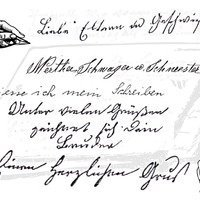 Liebe Eltern u Geschwis
Werther Schwager u. Schwester
ese ich mein Schreiben
Unter vielen Grüßen
zeichnet sich Dein
Bruder
Einen Herzlichen Gruß